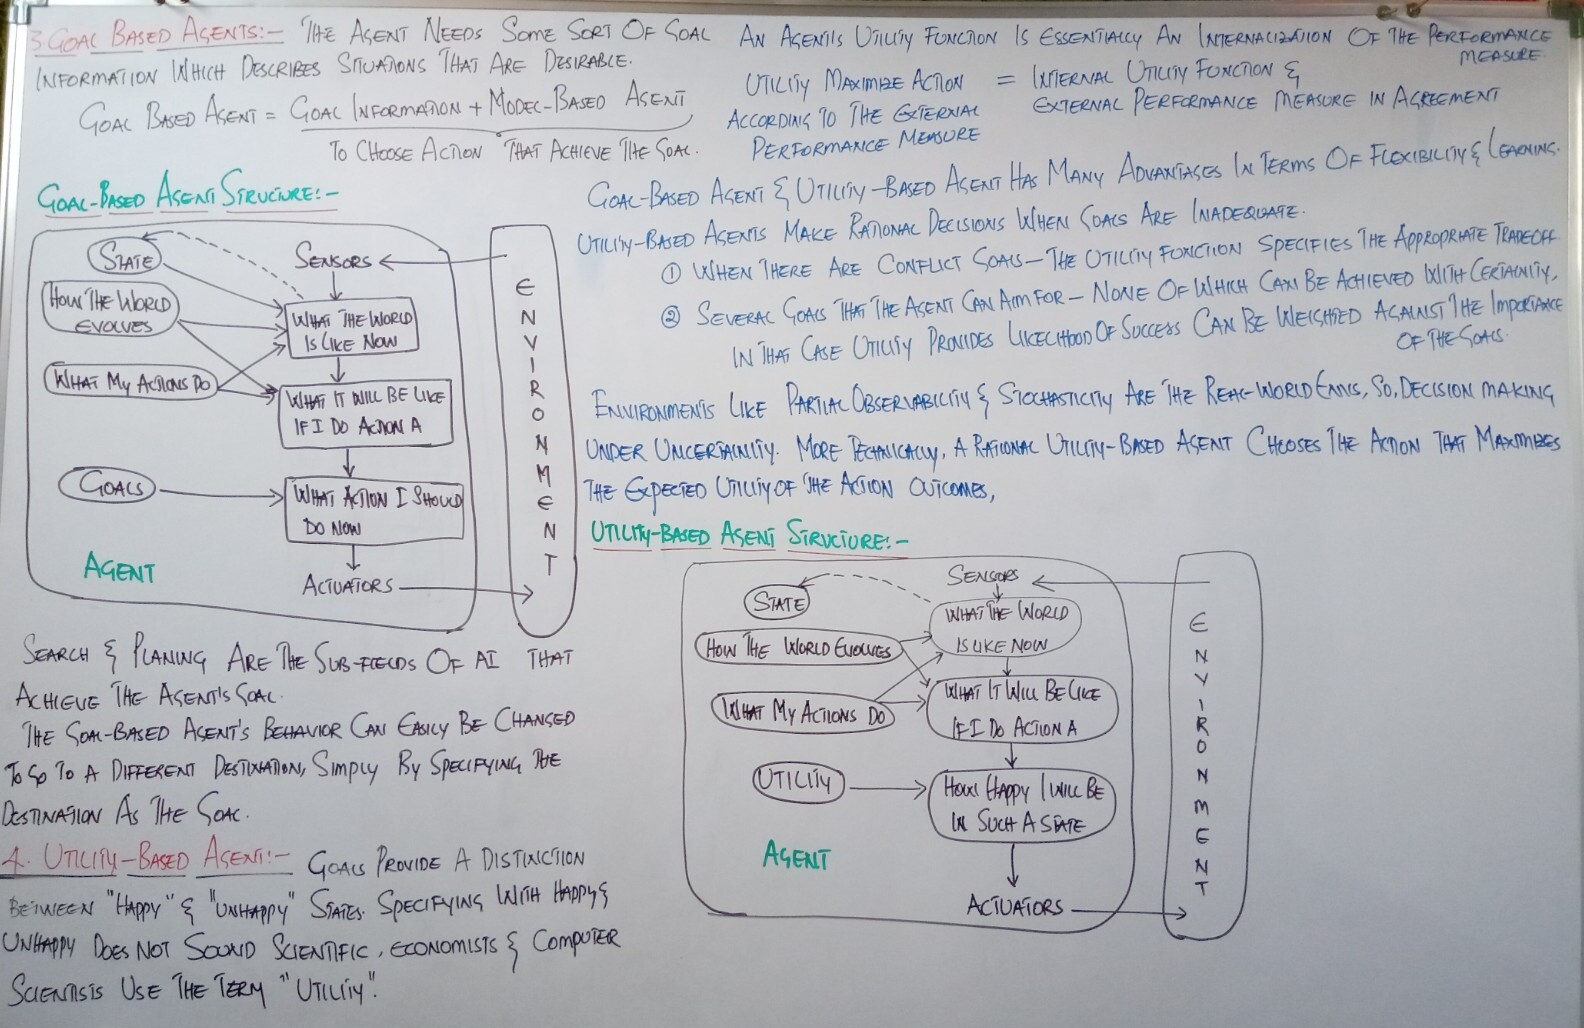 3. GOAL BASED AGENTS:- THE AGENT NEEDS SOME SORT OF GOAL
INFORMATION WHICH DESCRIBES SITUATIONS THAT ARE DESIRABLE.
GOAL BASED AGENT = GOAL INFORMATION + MODEL-BASED AGENT
TO CHOOSE ACTION THAT ACHIEVE THE GOAL.
GOAL-BASED AGENT STRUCTURE:-
STATE
SENSORS
HOW THE WORLD
EVOLVES
WHAT THE WORLD
IS LIKE NOW
WHAT MY ACTIONS DO
WHAT IT WILL BE LIKE
IF I DO ACTION A
GOALS
WHAT ACTION I SHOULD
DO NOW
AGENT
ACTUATORS
ENVIRONMENT
SEARCH & PLANING ARE THE SUB-FIELDS OF AI THAT
ACHIEVE THE AGENT'S GOAL.
THE GOAL-BASED AGENT'S BEHAVIOR CAN EASILY BE CHANGED
TO GO TO A DIFFERENT DESTINATION, SIMPLY BY SPECIFYING THE
DESTINATION AS THE GOAL.
4. UTILITY-BASED AGENT:- GOALS PROVIDE A DISTINCTION
BETWEEN "HAPPY" & "UNHAPPY" STATES. SPECIFYING WITH HAPPY &
UNHAPPY DOES NOT SOUND SCIENTIFIC, ECONOMISTS & COMPUTER
SCIENTISTS USE THE TERM "UTILITY".
AN AGENT'S UTILITY FUNCTION IS ESSENTIALLY AN INTERNALIZATION OF THE PERFORMANCE
MEASURE
UTILITY MAXIMIZE ACTION = INTERNAL UTILITY FUNCTION &
ACCORDING TO THE EXTERNAL EXTERNAL PERFORMANCE MEASURE IN AGREEMENT
PERFORMANCE MEASURE
GOAL-BASED AGENT & UTILITY-BASED AGENT HAS MANY ADVANTAGES IN TERMS OF FLEXIBILITY & LEARNING.
UTILITY-BASED AGENTS MAKE RATIONAL DECISIONS WHEN GOALS ARE INADEQUATE.
① WHEN THERE ARE CONFLICT GOALS - THE UTILITY FUNCTION SPECIFIES THE APPROPRIATE TRADEOFF.
② SEVERAL GOALS THAT THE AGENT CAN AIM FOR - NONE OF WHICH CAN BE ACHIEVED WITH CERTAINITY,
IN THAT CASE UTILITY PROVIDES LIKELIHOOD OF SUCCESS CAN BE WEIGHTED AGAINST THE IMPORTANCE
OF THE GOALS.
ENVIRONMENTS LIKE PARTIAL OBSERVABILITY & STOCHASTICITY ARE THE REAL-WORLD ENVTS, SO, DECISION MAKING
UNDER UNCERTAINITY. MORE TECHNICALLY, A RATIONAL UTILITY-BASED AGENT CHOOSES THE ACTION THAT MAXIMIZES
THE EXPECTED UTILITY OF THE ACTION OUTCOMES,
UTILITY-BASED AGENT STRUCTURE:-
SENSORS
STATE
WHAT THE WORLD
IS LIKE NOW
HOW THE WORLD EVOLVES
WHAT MY ACTIONS DO
WHAT IT WILL BE LIKE
IF I DO ACTION A
UTILITY
HOW HAPPY I WILL BE
IN SUCH A STATE
AGENT
ACTUATORS
ENVIRONMENT